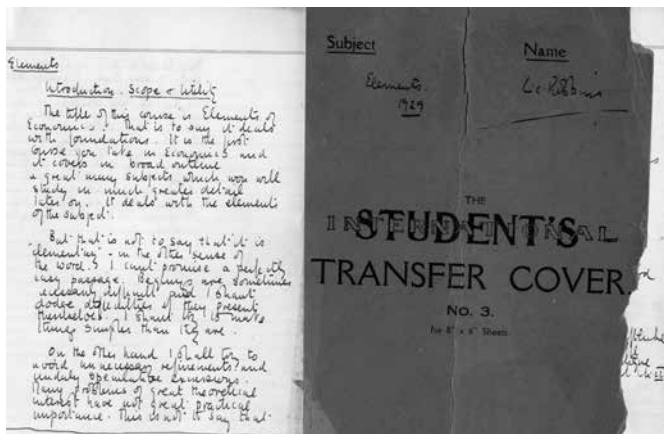 Elements
Introduction. Scope & Utility
The title of this course is Elements of
Economics. That is to say it deals
with foundations. It is the first
course you take in Economics and
it covers in broad outline
a great many subjects which you will
study in much greater detail
later on. It deals with the elements
of the subject.
But that is not to say that it is
elementary - in the other sense of
the word. I can't promise a perfectly
easy passage. Beginnings are sometimes
necessarily difficult and I shan't
dodge difficulties if they present
themselves. I shan't try to make
things simpler than they are.
On the other hand I shall try to
avoid unnecessary refinements and
unduly speculative excursions.
Many problems of great theoretical
interest have not great practical
importance. This is not to say that
Subject
Name
Elements.
1929
L. C. Robbins
THE
INTERNATIONAL
STUDENT'S
TRANSFER COVER.
No. 3.
for 8" x 6" Sheets